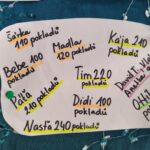 Šárka
110 pokladů
Madla
120 pokladů
Kája 210
pokladů
Bebe 100
pokladů
Tim 220
pokladů
Pája
210 pokladů
Didi 100
pokladů
Nasťa 240 pokladů